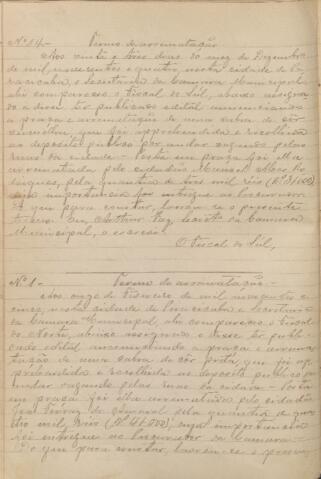 Nº 14 - Termo de arrematação
Aos vinte e tres dias do mez de Dezembro
de mil novecentos e quatro, nesta cidade de Pi-
racicaba, e Secretaria da Camara Municipal,
ahi compareceo o Fiscal do Sul, abaixo assigna-
do e disse ter publicado edital annunciando
a praça e arrematação de uma cabra de côr
que foi apprehendida e recolhida
ao deposito publico por andar vagando pelas
ruas da cidade - Posta em praça foi ella
arrematada pelo cidadão Manoel
pela quantia de tres mil reis (Rs 3$000)
cuja importancia foi entregue ao Procurador.
E para constar, lavrou-se o presente
termo. Eu, Arthur Vaz, Secretº da Camara
Municipal, o escrevi.
O Fiscal do Sul,
Nº 1 - Termo de arrematação -
Aos onze de Fevereiro de mil novecentos e
cinco, nesta cidade de Piracicaba e Secretaria
da Camara Municipal, ahi compareceo o Fiscal
do Norte, abaixo assignado e disse ter publi-
cado edital annunciando a praça e arrema-
tação de uma cabra de côr preta, que foi ap-
prehendida e recolhida ao deposito publico por
andar vagando pelas ruas da cidade - Posta
em praça foi ella arrematada pelo cidadão
do Amaral pela quantia de
mil reis cuja importancia
foi entregue ao Procurador da Camara -
E que para constar, lavrou-se o presen-